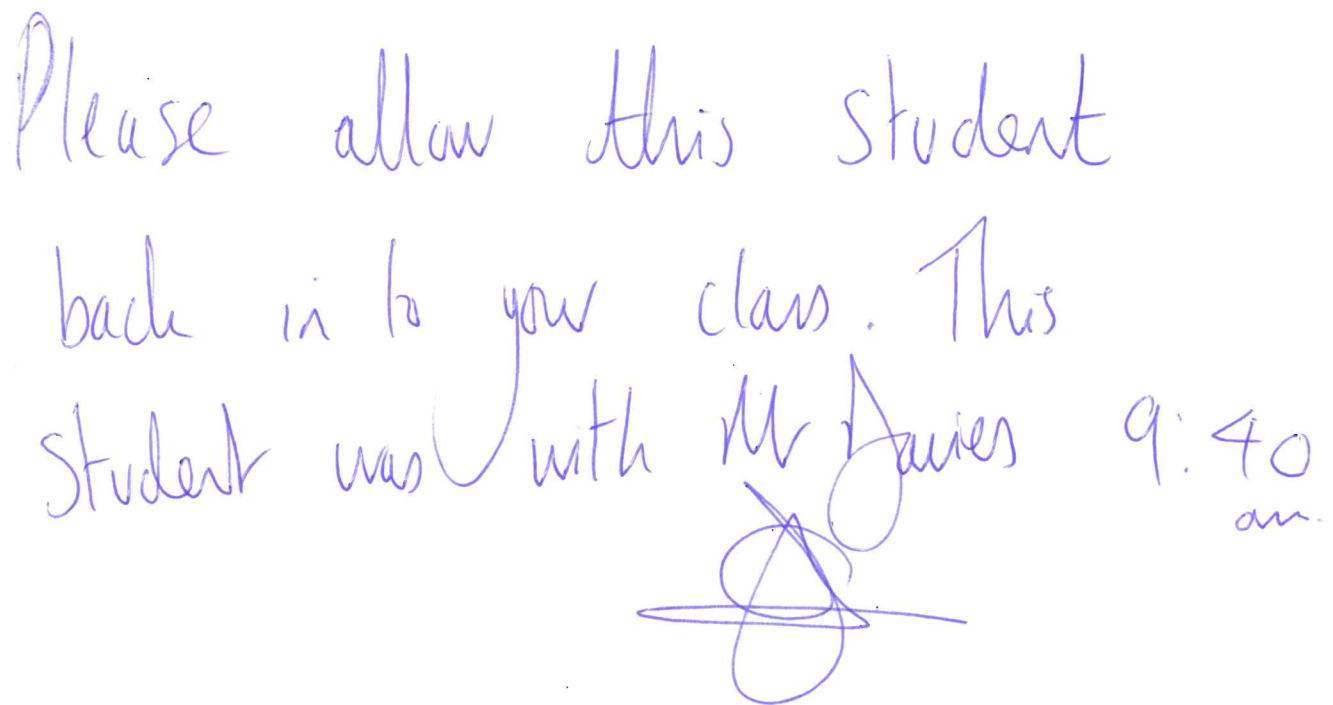 Please allow this student
back in to your class. This
student was with Mr Davies 9:40
am.